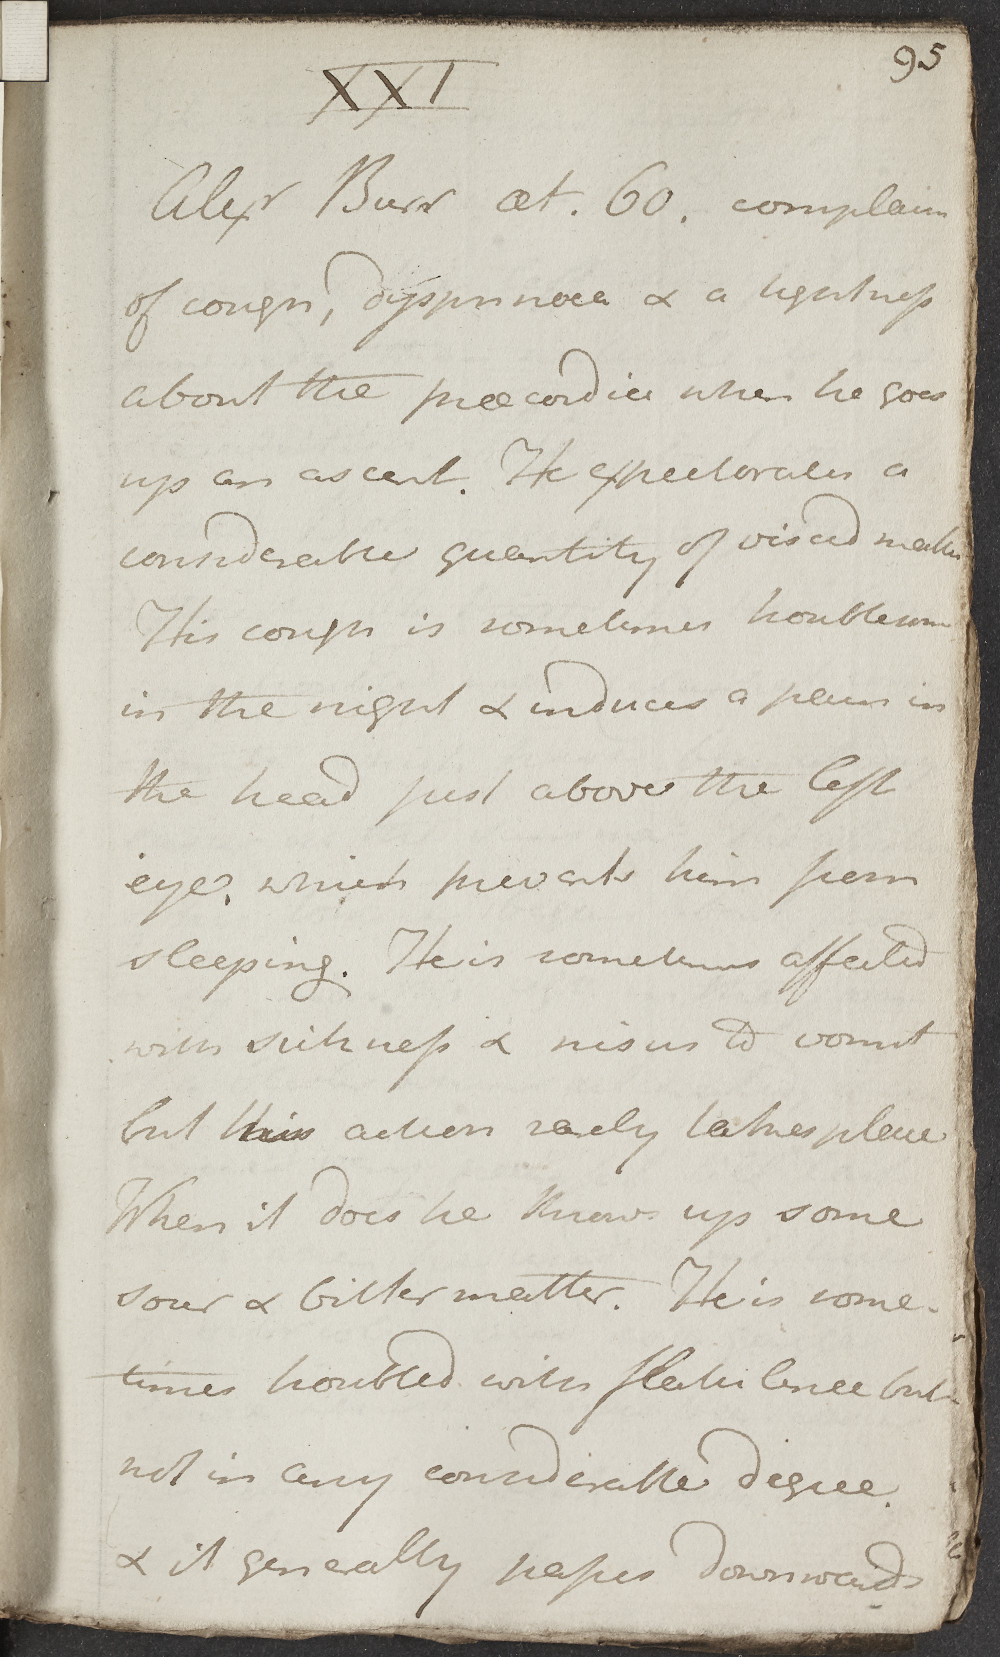 95
XXI
Alexr Burr æt. 60. complain
of cough, dyspnnoea & a tightness
about the præcordia when he goes
up an ascent. He expectorates a
considerable quantity of viscid matter
This cough is sometimes troublesome
in the night & induces a pain in
the head just above the left
eye, which prevents him from
sleeping. He is sometimes affected
with sickness & nisus to vomit
but this action rarely takes place
When it does he throws up some
sour & bitter matter. He is some-
times troubled with flatulence but
not in any considerable degree.
& it generally passes downwards